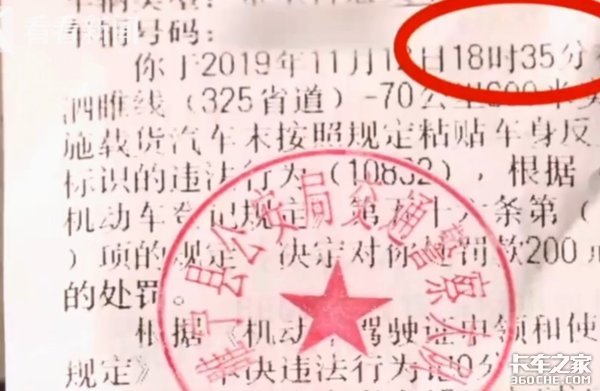 看看新闻
车辆号码:
你于2019年11月12日18时35分
泗睢线(325省道)-70公里600米实
施载货汽车未按照规定粘贴车身反
标识的违法行为(10832),根据《
机动车登记规定》第五十六条第(
)项的规定,决定对你处罚款200
的处罚。
根据《机动车驾驶证申领和使
规定》 本次违法行为记0分
睢宁县公安局交通警察大队
卡车之家
360che.com